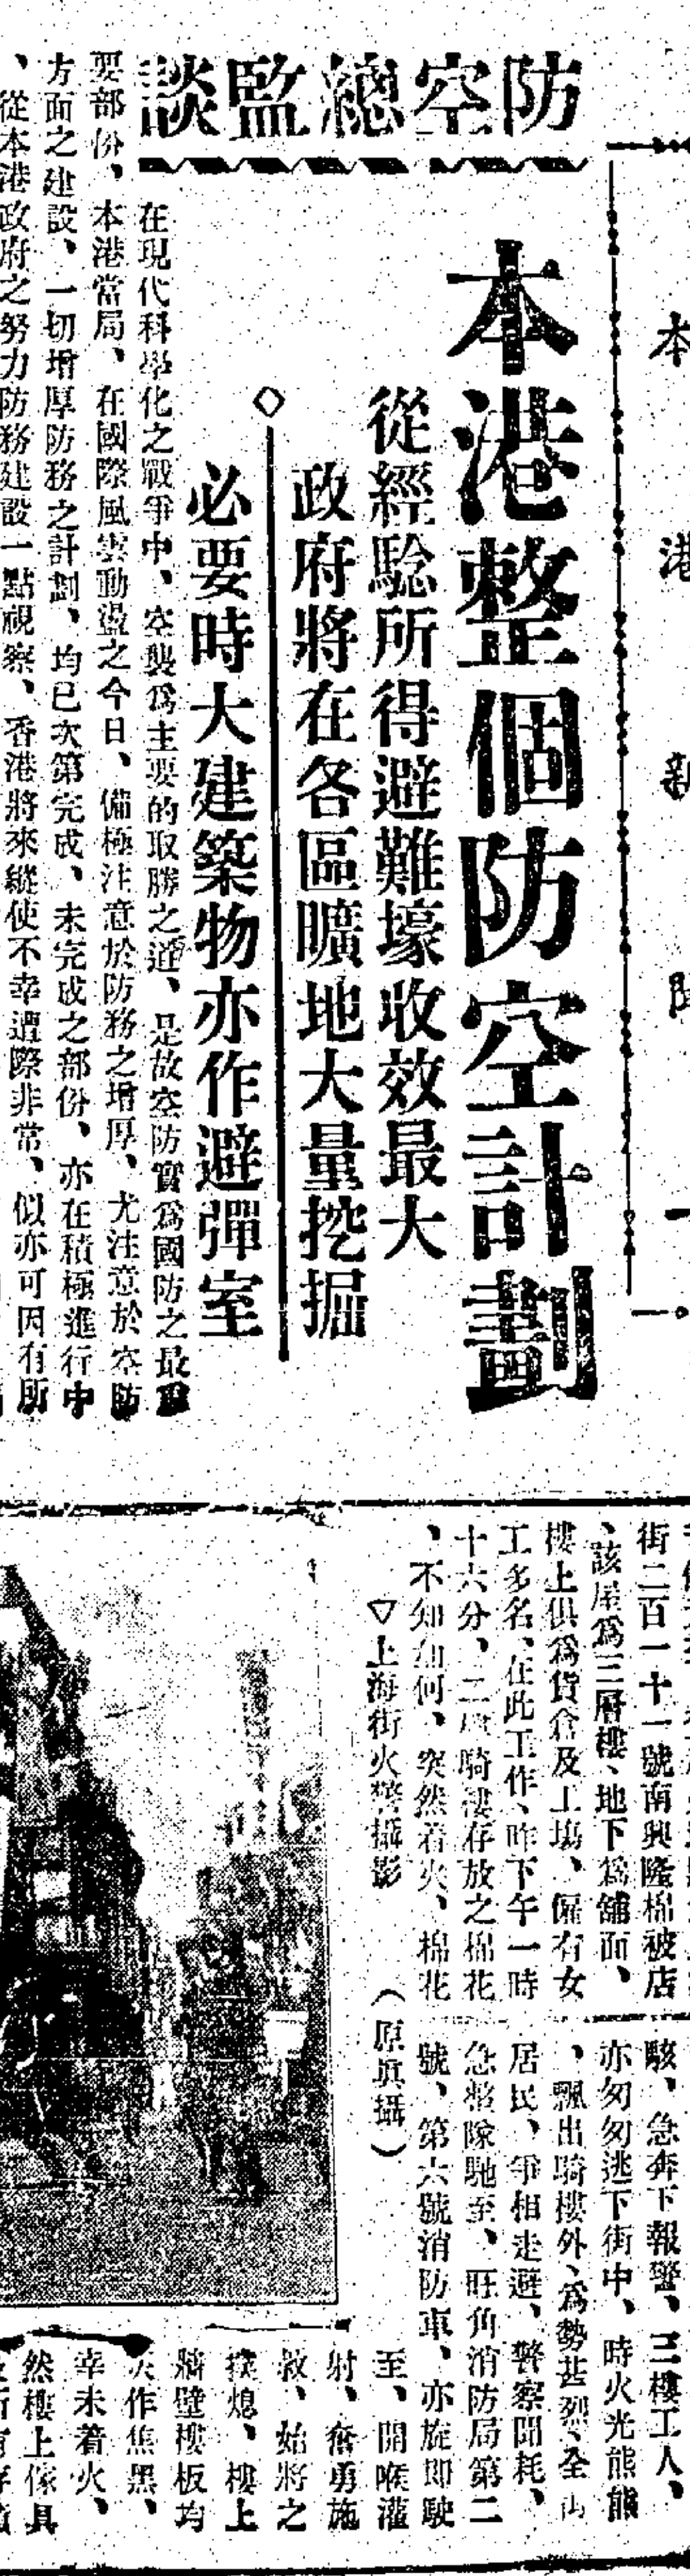 本港新聞
防空總監談
本港整個防空計劃
從經驗所得避難壕收效最大
政府將在各區曠地大量挖掘
必要時大建築物亦作避彈室
在現代科學化之戰爭中、空襲爲主要的取勝之道、是故空防實爲國防之最重
要部份、本港當局、在國際風雲動盪之今日、備極注意於防務之增厚、尤注意於空防
方面之建設、一切增厚防務之計劃、均已次第完成、未完成之部份、亦在積極進行中
、從本港政府之努力防務建設一點視察、香港將來縱使不幸遭際非常、似亦可因有所
街二百一十一號南興隆棉被店
、該屋爲三層樓、地下爲舖面、
樓上俱爲貨倉及工塲、僱有女
工多名、在此工作、昨下午一時
十六分、二樓騎樓存放之棉花
、不知如何、突然着火、棉花
▽上海街火警攝影
（原眞攝）
駭、急奔下報警、三樓工人、
亦匆匆逃下街中、時火光熊熊
、飄出騎樓外、爲勢甚烈、全
居民、爭相走避、警察聞耗、
急整隊馳至、旺角消防局第二
號、第六號消防車、亦旋即駛
至、開喉灌
射、奮勇施
救、始將之
撲熄、樓上
牆壁樓板均
作焦黑、
幸未着火、
然樓上傢具